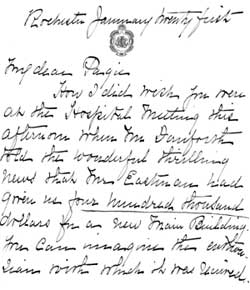 Rochester January twenty first
My dear Paige
How I did wish you were
at the Hospital Meeting this
afternoon when Mr Danforth
told the wonderful thrilling
news that Mr Eastman had
given us four hundred thousand
dollars for a new Main Building.
You can imagine the enthu-
siasm with which it was received.